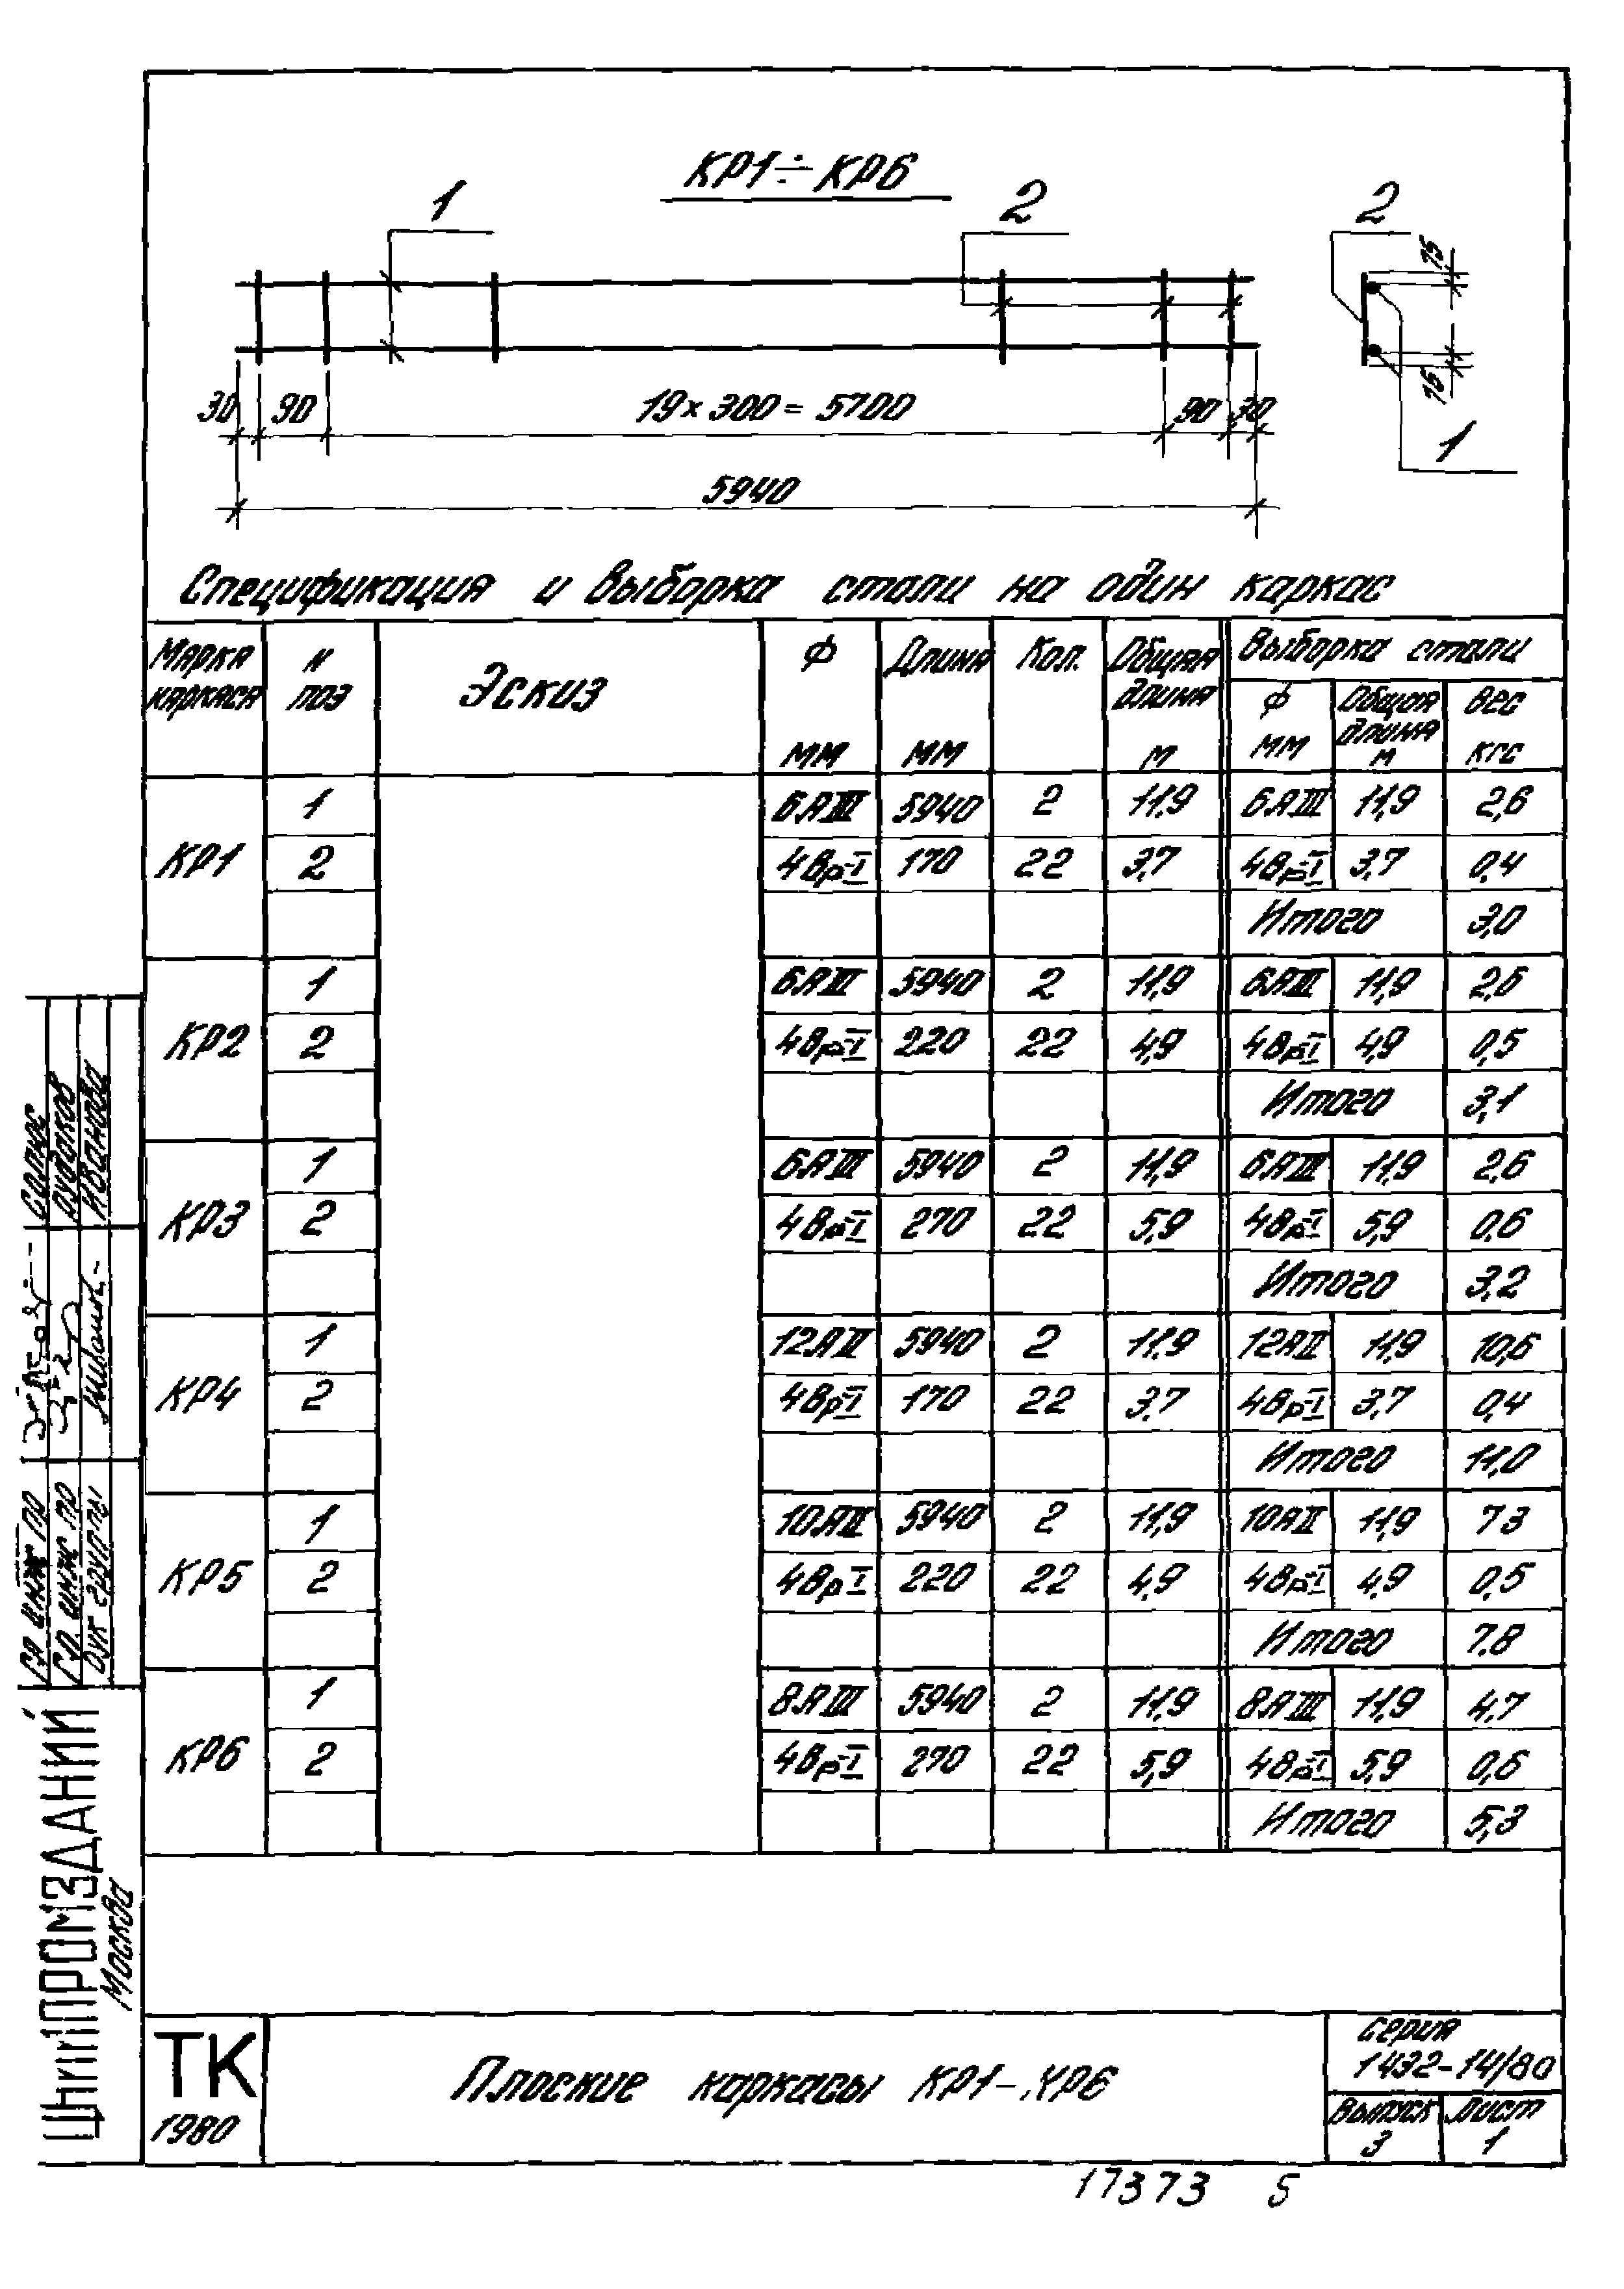 КР1÷КР6
1 2 2
15
15
1
30 90 19×300=5700 90 30
5940
Спецификация и выборка стали на один каркас
Марка каркаса N поз Эскиз Ф мм Длина мм Кол. Общая длина м Выборка стали
Ф мм Общая длина м Вес кгс
КР1 1 6АIII 5940 2 11,9 6АIII 11,9 2,6
2 4Вр-I 170 22 3,7 4Вр-I 3,7 0,4
Итого 3,0
КР2 1 6АIII 5940 2 11,9 6АIII 11,9 2,6
2 4Вр-I 220 22 4,9 4Вр-I 4,9 0,5
Итого 3,1
КР3 1 6АIII 5940 2 11,9 6АIII 11,9 2,6
2 4Вр-I 270 22 5,9 4Вр-I 5,9 0,6
Итого 3,2
КР4 1 12АII 5940 2 11,9 12АII 11,9 10,6
2 4Вр-I 170 22 3,7 4Вр-I 3,7 0,4
Итого 11,0
КР5 1 10АII 5940 2 11,9 10АII 11,9 7 3
2 4Вр-I 220 22 4,9 4Вр-I 4,9 0,5
Итого 7.8
КР6 1 8АIII 5940 2 11,9 8АIII 11,9 4,7
2 4Вр-I 270 22 5,9 4Вр-I 5,9 0,6
Итого 5,3
ТК
1980
Плоские каркасы КР1-КР6
Серия
1432-14/80
Выпуск 3
Лист 1
17373 5
ЦНИИПРОМЗДАНИЙ
Москва
Гл инж
Гл. инж пр
Рук групп
Рудаков
Иванова